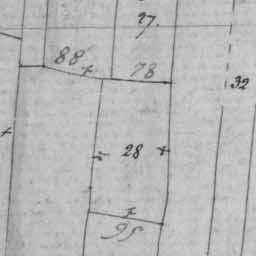 27.
88
78
32
28
95